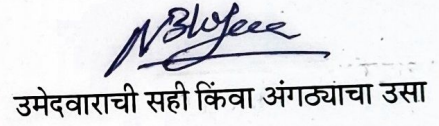 उमेदवाराची सही किंवा अंगठ्याचा उसा